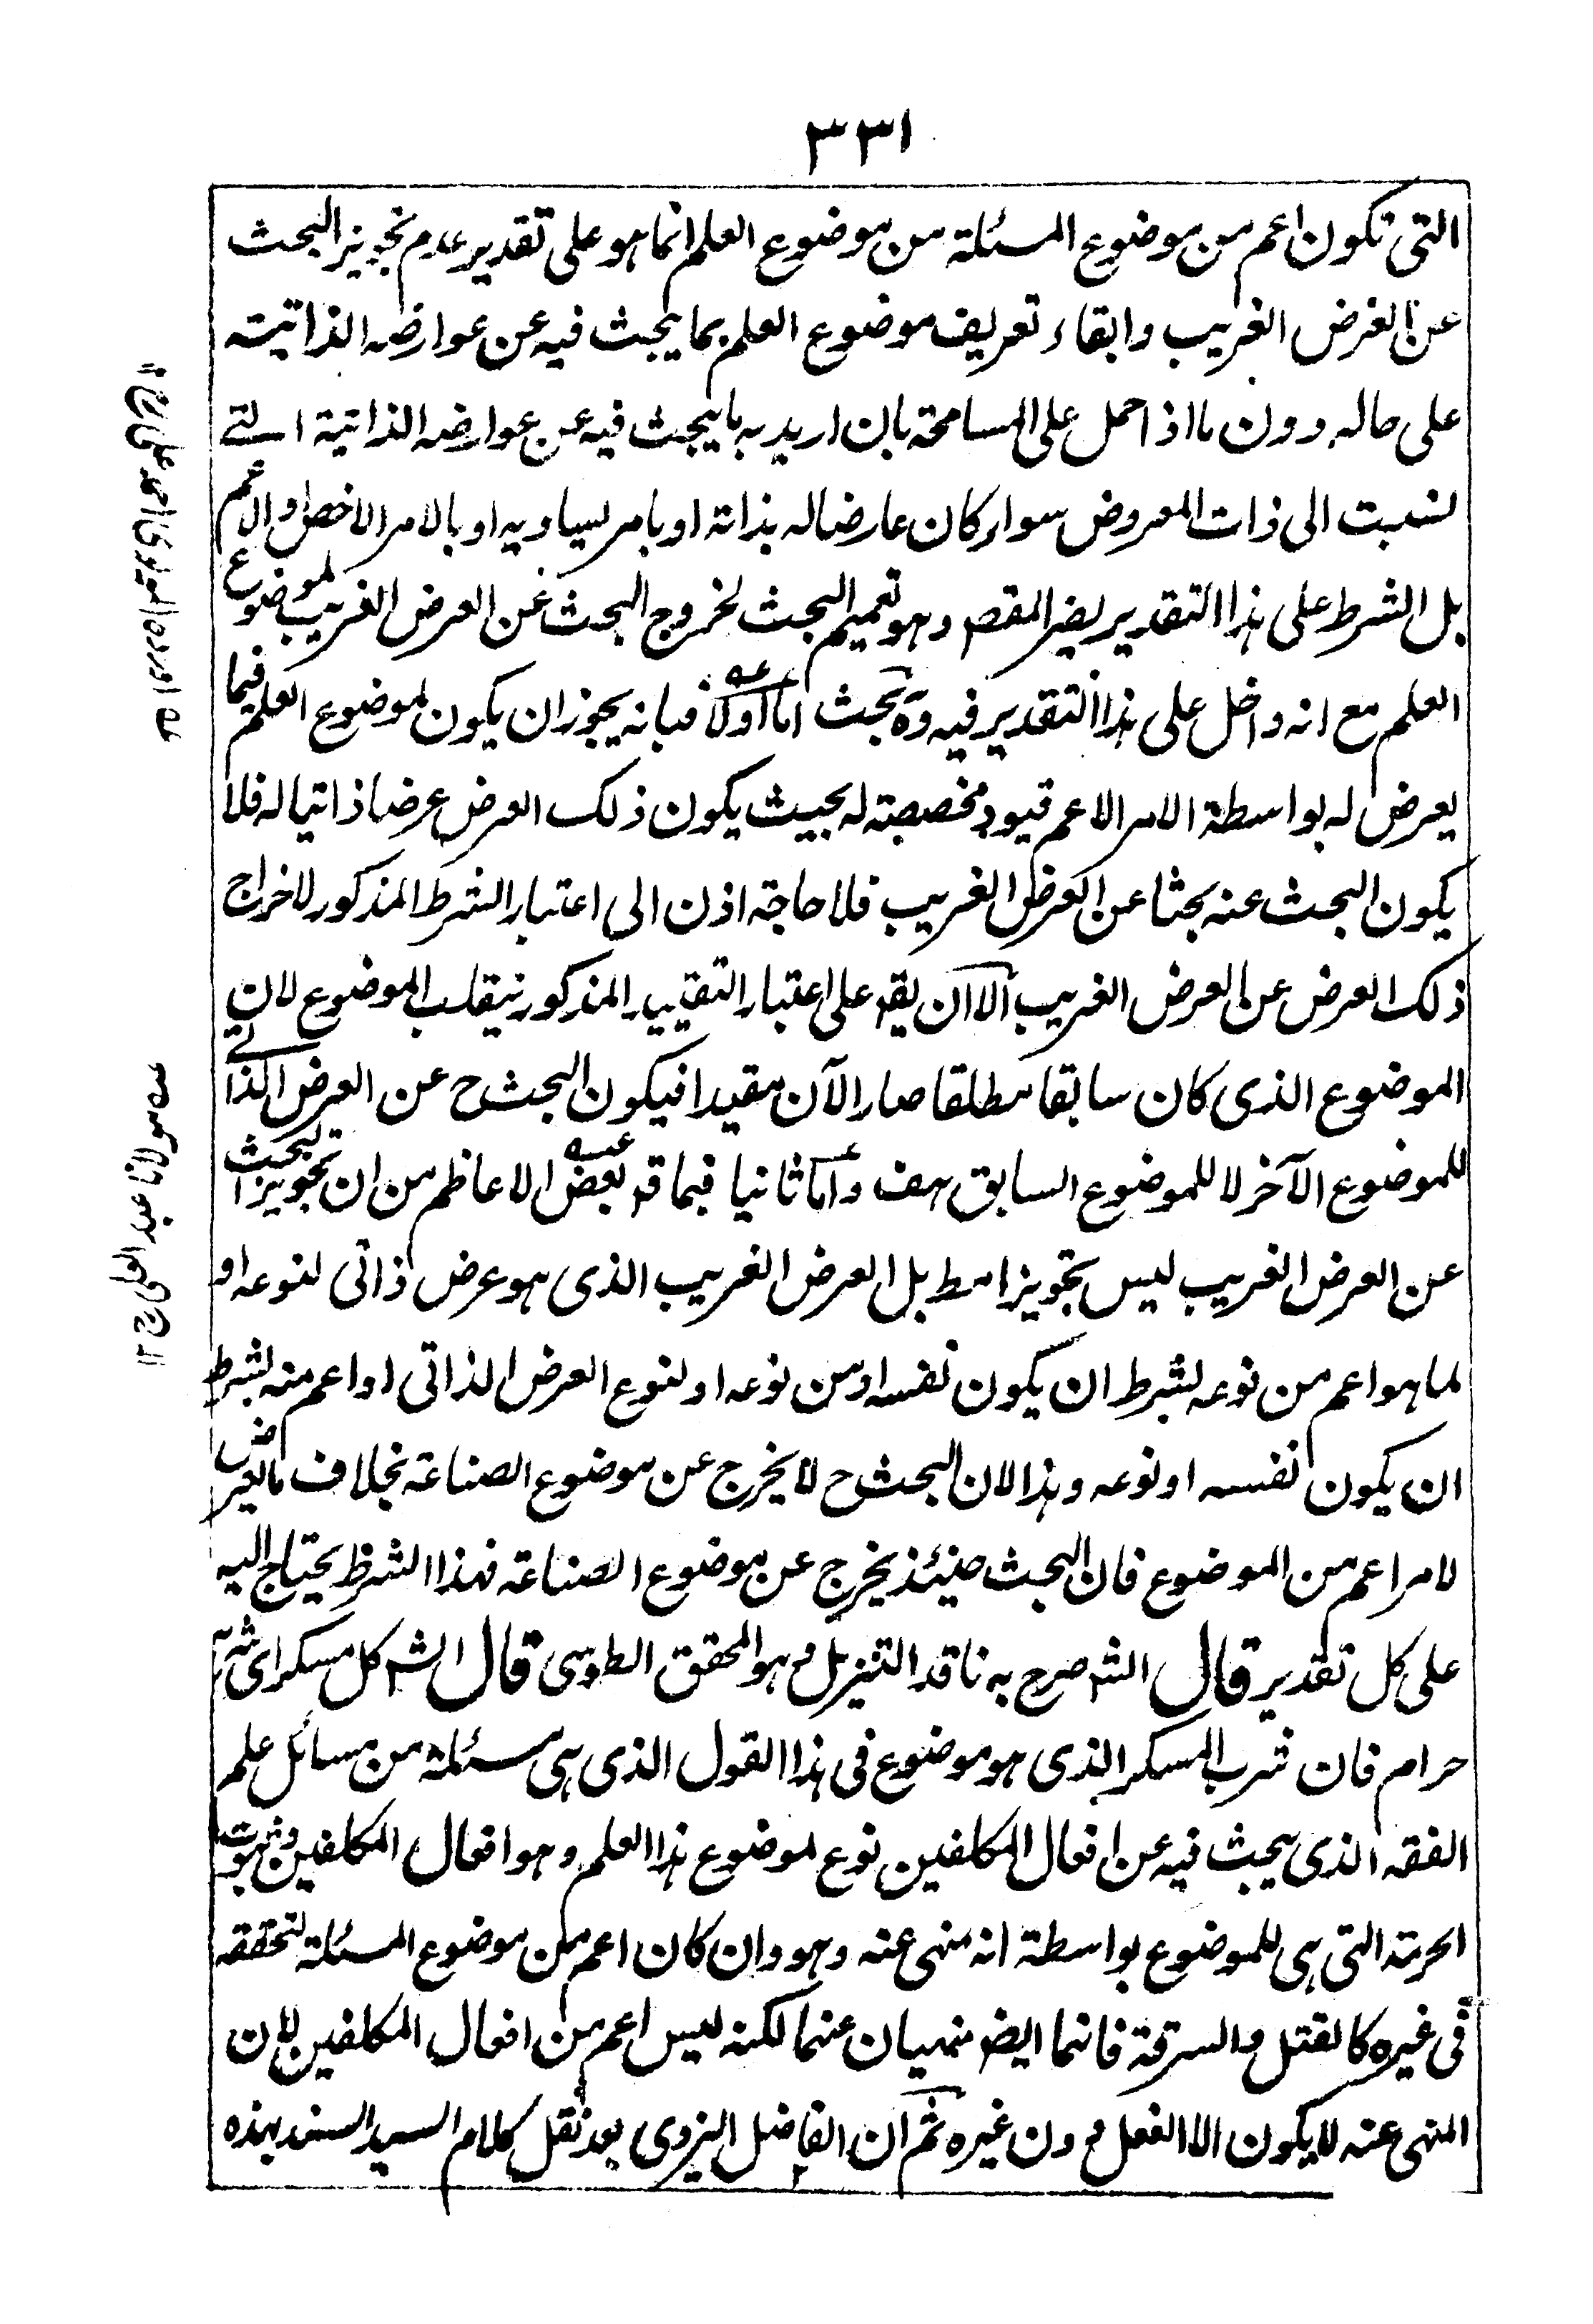 ٣٣١
التى تكون اعم من موضوع المسئلة من موضوع العلم انما هو على تقدير عدم تجويز البحث
عن العرض الغريب وابقاء تعريف موضوع العلم بما يبحث فيه عن عوارضه الذاتية
على حاله دون ما اذا حمل على المسامحة بان اريد به ما يبحث فيه عن عوارضه الذاتية التے
نسبت الى ذات المعروض سواء كان عارضا له بذاته او بامر يساويه او بالامر الاخص او الاعم
بل الشرط على هذا التقدير يضر المقصد وهو تعميم البحث لخروج البحث عن العرض الغريب لموضوع
العلم مع انه داخل على هذا التقدير فيه وفيه بحث اما اولا فبانه يجوز ان يكون لموضوع العلم فيما
يعرض له بواسطة الامر الاعم قيود مخصصة له بحيث يكون ذلك العرض عرضا ذاتيا له فلا
يكون البحث عنه بحثا عن العرض الغريب فلا حاجة اذن الى اعتبار الشرط المذكور لاخراج
ذلك العرض عن العرض الغريب الا ان يقم على اعتبار التقييد المذكور ينقلب الموضوع لان
الموضوع الذى كان سابقا مطلقا صار الآن مقيدا فيكون البحث ح عن العرض الذاتے
للموضوع الآخر لا للموضوع السابق هف واما ثانيا فبما قم بعض الاعاظم من ان تجويز البحث
عن العرض الغريب ليس تجويزا مط بل العرض الغريب الذى هو عرض ذاتى لنوعه او
لما هو اعم من نوعه بشرط ان يكون نفسه او من نوعه او لنوع العرض الذاتى او اعم منه بشرط
ان يكون نفسه او نوعه وهذا لان البحث ح لا يخرج عن موضوع الصناعة بخلاف ما يعرض
لامر اعم من الموضوع فان البحث حينئذ يخرج عن موضوع الصناعة فهذا الشرط يحتاج اليه
على كل تقدير قال الشم صرح به ناقد التنزيل وهو المحقق الطوسى قال الشم كل مسكر اى شربه
حرام فان شرب المسكر الذى هو موضوع فى هذا القول الذى هى مسئلة من مسائل علم
الفقه الذى يبحث فيه عن افعال المكلفين نوع لموضوع هذا العلم وهو افعال المكلفين وثبوت
الحرمة التى هى للموضوع بواسطة انه منهى عنه وهو وان كان اعم من موضوع المسئلة لتحققه
فى غيره كالقتل والسرقة فانهما ايض منهيان عنهما لكنه ليس اعم من افعال المكلفين لان
المنهى عنه لا يكون الا الفعل دون غيره ثم ان الفاضل اليزدى بعد نقل كلام السيد السند بهذه
عه مولانا عبد العلى رح ١٢